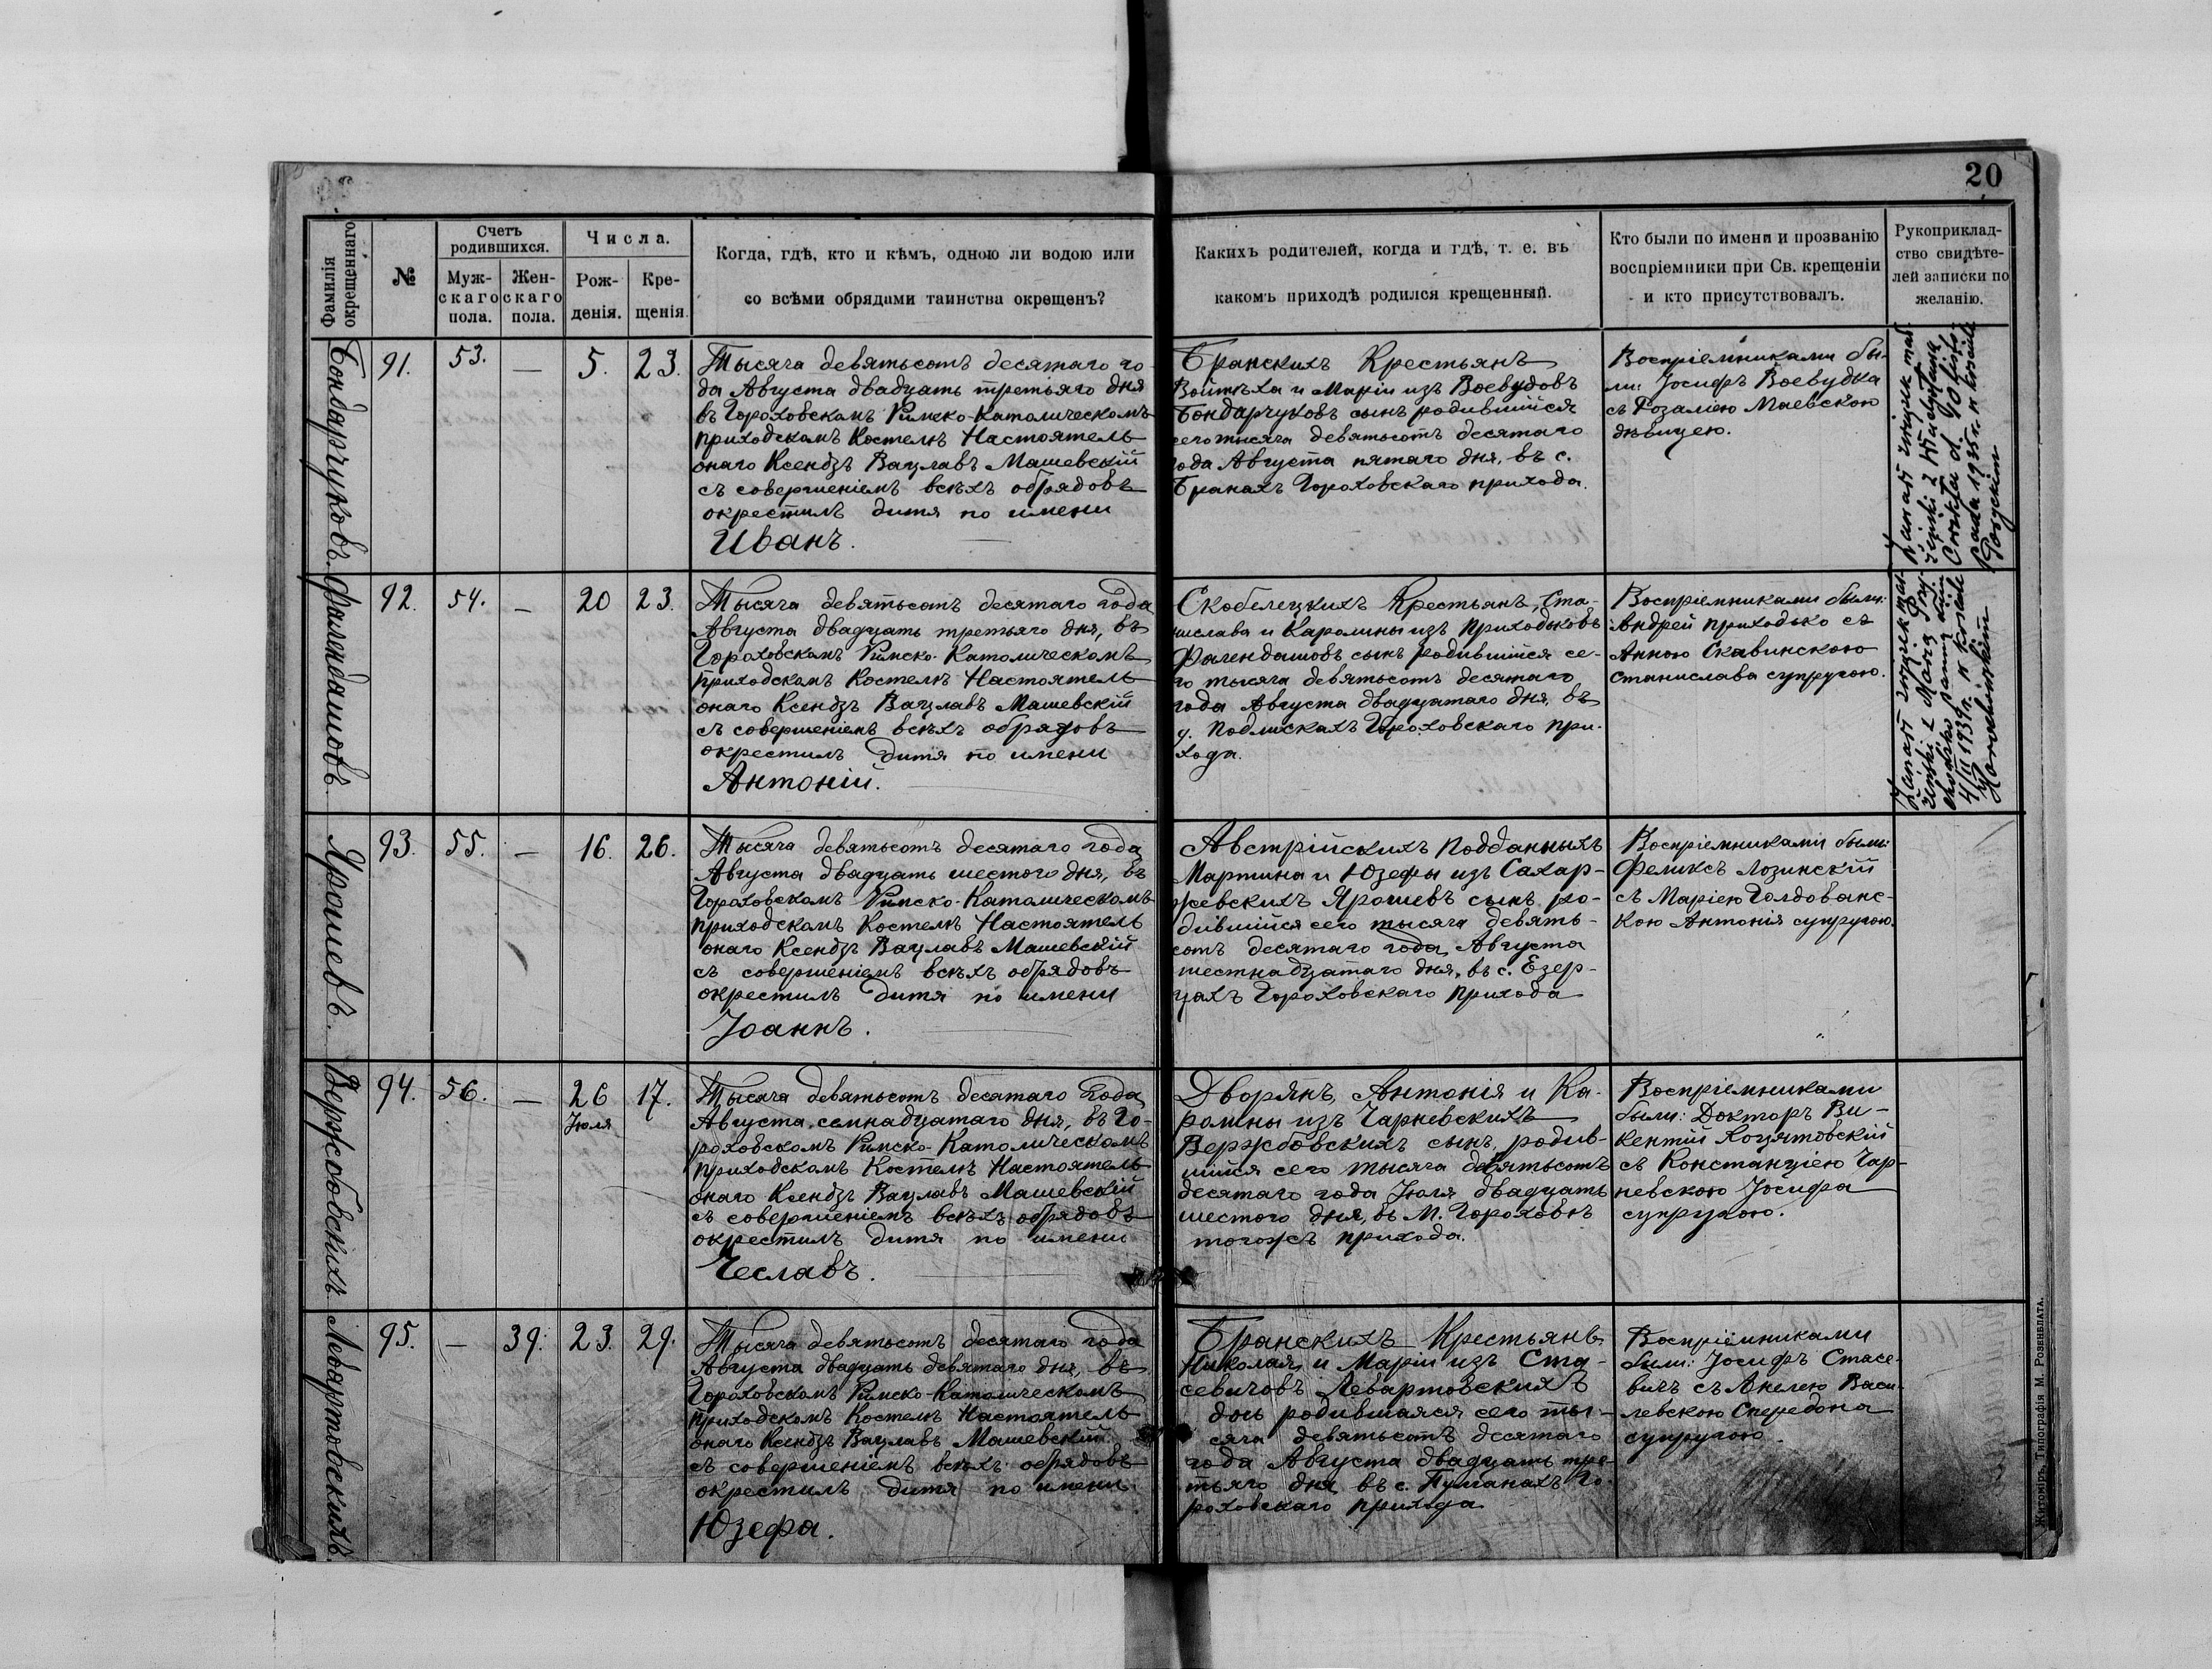 20
Фамилія
окрещеннаго
№
Счетъ
родившихся.
Муж-
скаго
пола.
Жен-
скаго
пола.
Числа.
Рож-
денія.
Кре-
щенія.
Когда, гдѣ, кто и кѣмъ, одною ли водою или
со всѣми обрядами таинства окрещенъ?
Какихъ родителей, когда и гдѣ, т. е. въ
какомъ приходѣ родился крещенный.
Кто были по имени и прозванію
воспріемники при Св. крещеніи
и кто присутствовалъ.
Рукоприклад-
ство свидѣте-
лей записки по
желанію.
Бондарчуковъ.
91.
53.
—
5.
23.
Тысяча девятьсотъ десятаго го-
да Августа двадцать третьяго дня
въ Гороховскомъ Римско-Католическомъ
приходскомъ Костелѣ Настоятель
онаго Ксендзъ Вацлавъ Машевскій
съ совершеніемъ всѣхъ обрядовъ
окрестилъ дитя по имени
Иванъ.
Бранскихъ Крестьянъ
Войтѣха и Маріи изъ Воевудовъ
Бондарчуковъ сынъ родившійся
сего тысяча девятьсотъ десятаго
года Августа пятаго дня, въ с.
Бранахъ Гороховскаго прихода.
Воспріемниками бы-
ли: Іосифъ Воевудка
съ Розаліею Маевскою
дѣвицею.
Zawarł związek mał-
żeński z
pada 1935 r. w kościele
Фалендашовъ
92.
54.
—
20
23.
Тысяча девятьсотъ десятаго года
Августа двадцать третьяго дня, въ
Гороховскомъ Римско-Католическомъ
приходскомъ Костелѣ Настоятель
онаго Ксендзъ Вацлавъ Машевскій
съ совершеніемъ всѣхъ обрядовъ
окрестилъ дитя по имени
Антоній.
Скобелецкихъ Крестьянъ, Ста-
нислава и Каролины изъ Приходьковъ
Фалендашовъ сынъ родившійся се-
го тысяча девятьсотъ десятаго
года Августа двадцатаго дня, въ
у. Подлискахъ Гороховскаго при-
хода.
Воспріемниками были:
Андрей Приходько съ
Анною Скавинскою
Станислава супругою.
Zawarł związek mał-
żeński z
4/II 1939 r. w kościele
Horochowskim
Ярошевъ.
93.
55.
—
16.
26.
Тысяча девятьсотъ десятаго года
Августа двадцать шестого дня, въ
Гороховскомъ Римско-Католическомъ
приходскомъ Костелѣ Настоятель
онаго Ксендзъ Вацлавъ Машевскій
съ совершеніемъ всѣхъ обрядовъ
окрестилъ дитя по имени
Іоаннъ.
Австрійскихъ Подданныхъ
Мартина и Юзефы изъ Сахар-
жевскихъ Ярошевъ сынъ ро-
дившійся сего тысяча девять-
сотъ десятаго года, Августа
шестнадцатаго дня, въ с. Езер-
цахъ Гороховскаго прихода
Воспріемниками были:
Феликсъ Лозинскій
съ Маріею Голдованс-
кою Антонія супругою.
Вержбовскихъ
94.
56.
—
26
Іюля
17.
Тысяча девятьсотъ десятаго года
Августа семнадцатаго дня, въ Го-
роховскомъ Римско-Католическомъ
приходскомъ Костелѣ Настоятель
онаго Ксендзъ Вацлавъ Машевскій
съ совершеніемъ всѣхъ обрядовъ
окрестилъ дитя по имени
Чеславъ.
Дворянъ, Антонія и Ка-
ролины изъ Чарневскихъ
Вержбовскихъ сынъ, родив-
шійся сего тысяча девятьсотъ
десятаго года Іюля двадцать
шестого дня, въ М. Гороховѣ
тогожъ прихода.
Воспріемниками
были: Докторъ Ви-
кентій Коцятовскій
съ Констанціею Чар-
невскою Іосифа
супругою.
Левартовскихъ.
95.
—
39.
23.
29.
Тысяча девятьсотъ десятаго года
Августа двадцать девятаго дня, въ
Гороховскомъ Римско-Католическомъ
приходскомъ Костелѣ Настоятель
онаго Ксендзъ Вацлавъ Машевскій
съ совершеніемъ всѣхъ обрядовъ
окрестилъ дитя по имени
Юзефа.
Бранскихъ Крестьянъ
Николая и Маріи изъ Ста-
севичовъ Левартовскихъ
дочь родившаяся сего ты-
сяча девятьсотъ десятаго
года Августа двадцать тре-
тьяго дня въ с. Пулганахъ Го-
роховскаго прихода
Воспріемниками
были: Іосифъ Стасе-
вичъ съ Анелею Васи-
левскою Спередона
супругою.
Житоміръ, Типографія М. Розенблата.